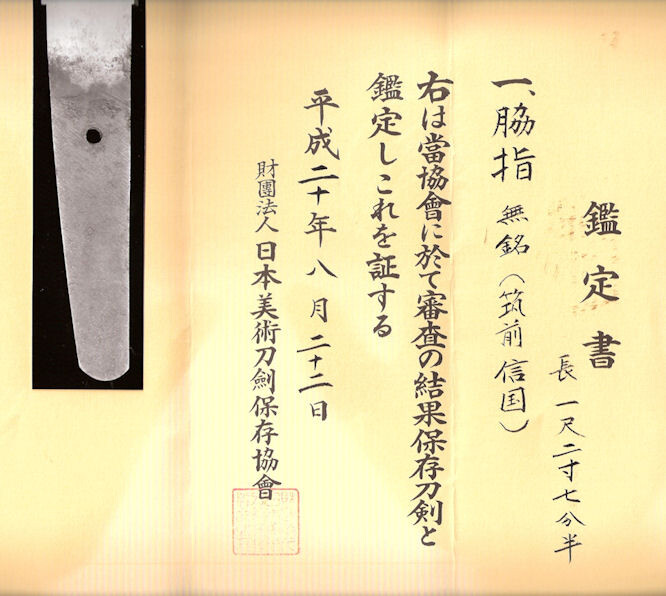 鑑定書
長 一尺二寸七分半
一、脇指 無銘（筑前信国）
右は當協會に於て審査の結果保存刀剣と
鑑定しこれを証する
平成二十年八月二十二日
財團法人 日本美術刀劍保存協會